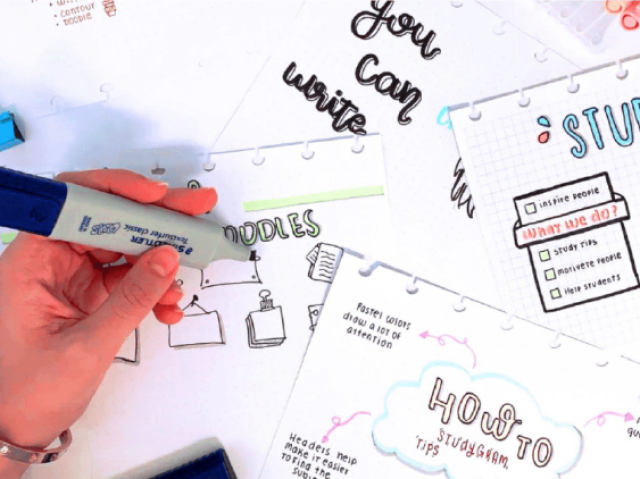 contour
Doodle
You
can
write
DOODLES
STAEDTLER
Textsurfer classic
STU
inspire people
What we do?
study tips
motivate people
Help students
Pastel colors
draw a lot of
attention
HOW TO
STUDYGRAM
TIPS
Headers help
make it easier
to find the